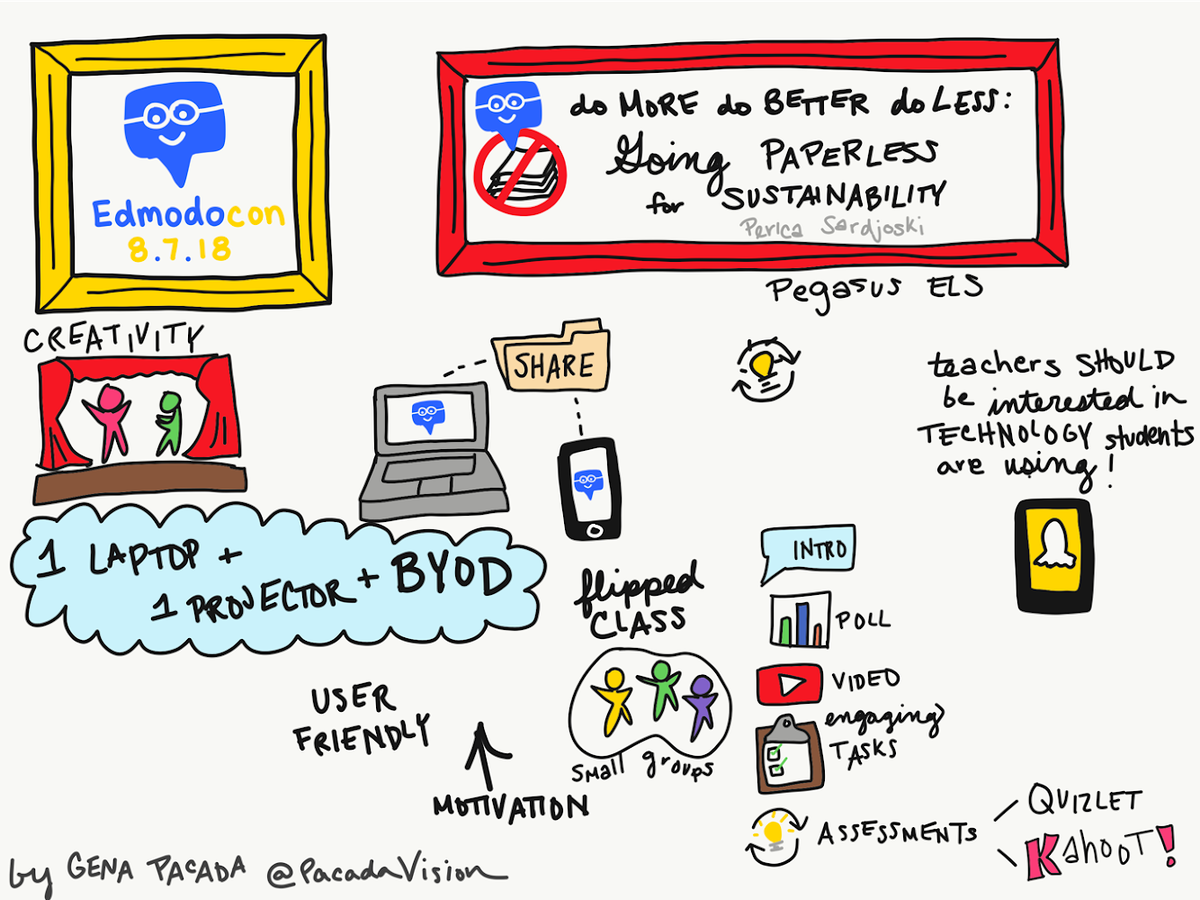 Edmodocon
8.7.18
do MORE do BETTER do LESS:
Going PAPERLESS
for SUSTAINABILITY
Perica Sardjoski
Pegasus ELS
CREATIVITY
SHARE
teachers SHOULD
be interested in
TECHNOLOGY students
are using!
1 LAPTOP +
1 PROJECTOR + BYOD
flipped
CLASS
small groups
INTRO
POLL
VIDEO
engaging
TASKS
ASSESSMENTS
QUIZLET
Kahoot!
USER
FRIENDLY
MOTIVATION
by GENA PACADA @PacadaVision